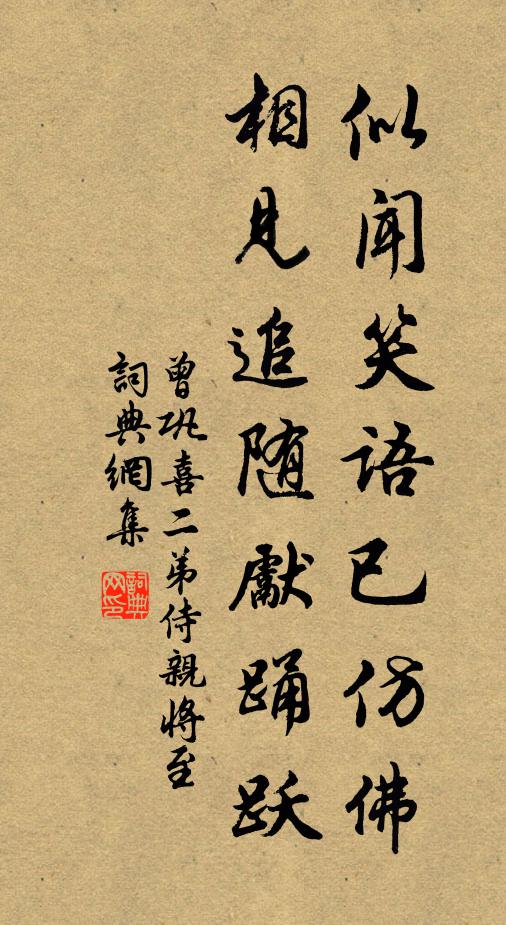 似闻笑语已仿佛
相見追随獻踊跃
曾巩喜二弟侍親將至
詞典網集
詞典网印